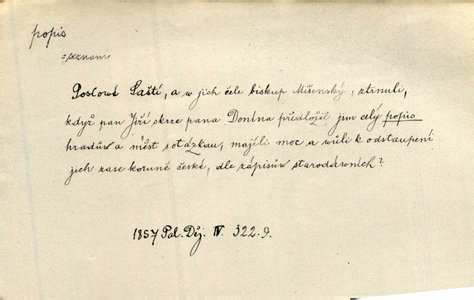 popis
seznam
Poslové Saští, a w jich čele biskup Mišenský, ztrnuli,
když pan Jiří skrze pana Donína předložil jim celý popis
hradůw a měst s otázkau, majíli moc a wůli k odstaupení
jich zase koruně české, dle zápisůw starodáwních?
1857 Pal. Děj. IV. 322. 9.